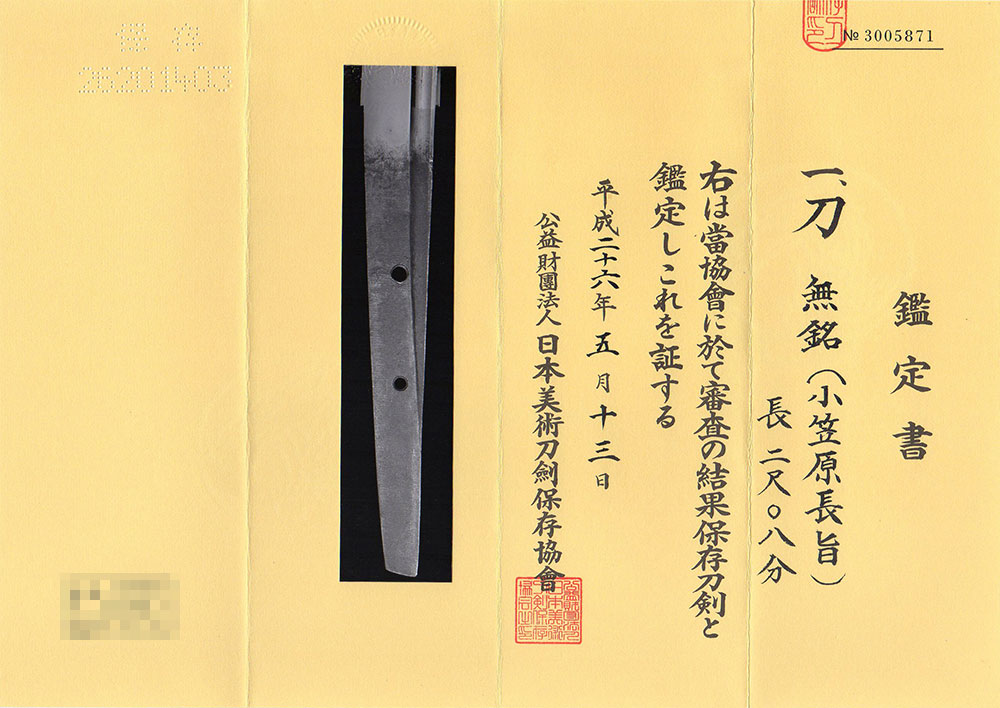 № 3005871
鑑定書
一、刀 無銘(小笠原長旨)
長 二尺〇八分
右は當協會に於て審査の結果保存刀剣と
鑑定しこれを証する
平成二十六年五月十三日
公益財團法人日本美術刀劍保存協會
保存
26201403